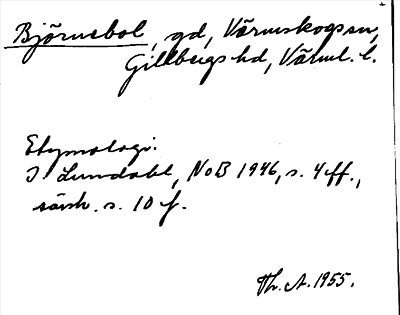 Björnebol, gd, Värmskogs sn,
Gillbergs hd, Värml. l.
Etymologi:
I. Lundahl, NoB 1946, s. 4 ff.,
särsk. s. 10 f.
Th. A. 1955.